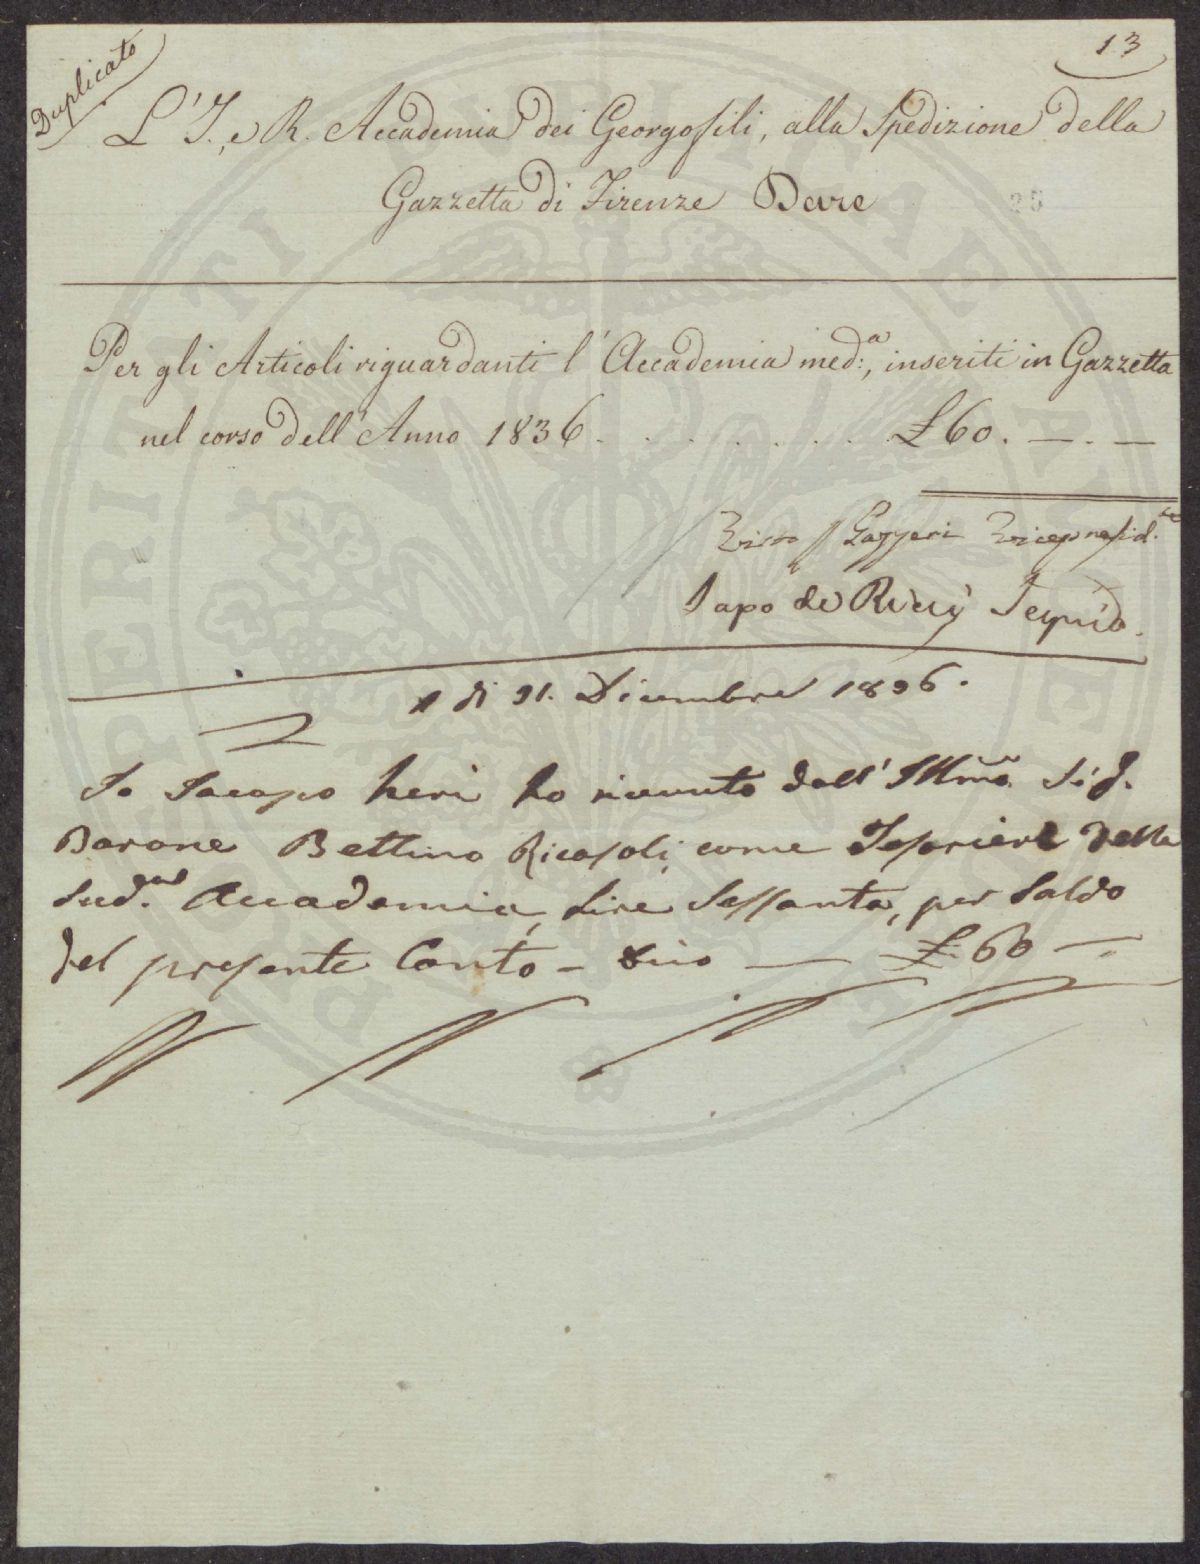 Duplicato
13
L'I. e R. Accademia dei Georgofili, alla Spedizione della
Gazzetta di Firenze Dare
25
Per gli Articoli riguardanti l'Accademia med:a, inseriti in Gazzetta
nel corso dell'Anno 1836 . . . . . . . . . £ 60. — . —
Visto Gazzeri Vicepresid.te
Lapo de Ricci Segrio.
A di 31. Dicembre 1836.
Io Jacopo Neri ho ricevuto dall' Illmo Sig.
Barone Bettino Ricasoli come Tesoriere della
Sud.a Accademia, Lire Sessanta, per Saldo
del presente Conto — Dico — £ 60 —
PERITI
PUBLICAE